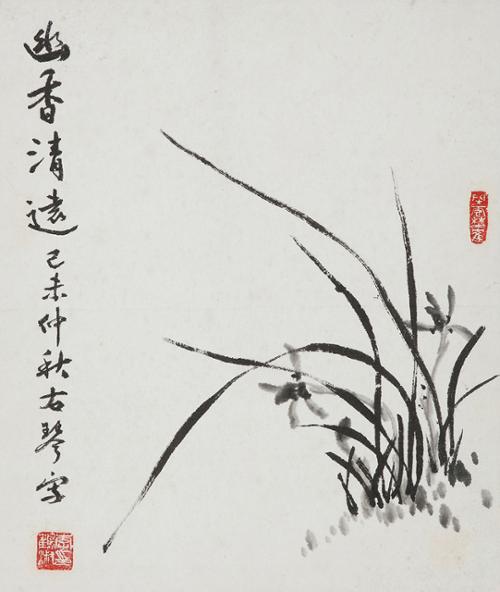 幽香清遠己未仲秋右琴写